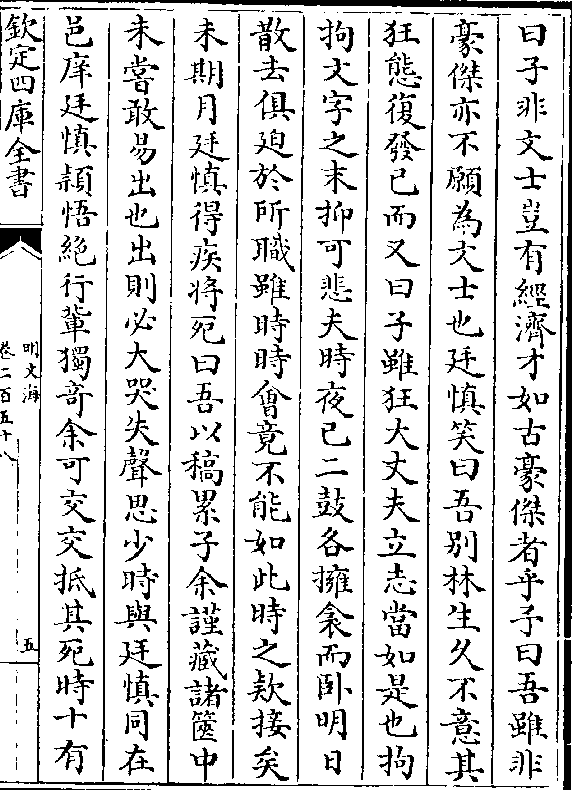 曰子非文士豈有經濟才如古豪傑者乎予曰吾雖非
豪傑亦不願為文士也廷慎笑曰吾別林生久不意其
狂態復發已而又曰子雖狂大丈夫立志當如是也拘
拘文字之末抑可悲夫時夜已二鼓各擁衾而卧明日
散去俱廹於所職雖時時會竟不能如此時之欵接矣
未期月廷慎得疾将死曰吾以稿累子余謹藏諸篋中
未嘗敢易出也出則必大哭失聲思少時與廷慎同在
邑庠廷慎頴悟絶行輩獨竒余可交交抵其死時十有
欽定四庫全書
明文海
卷二百五十八
五